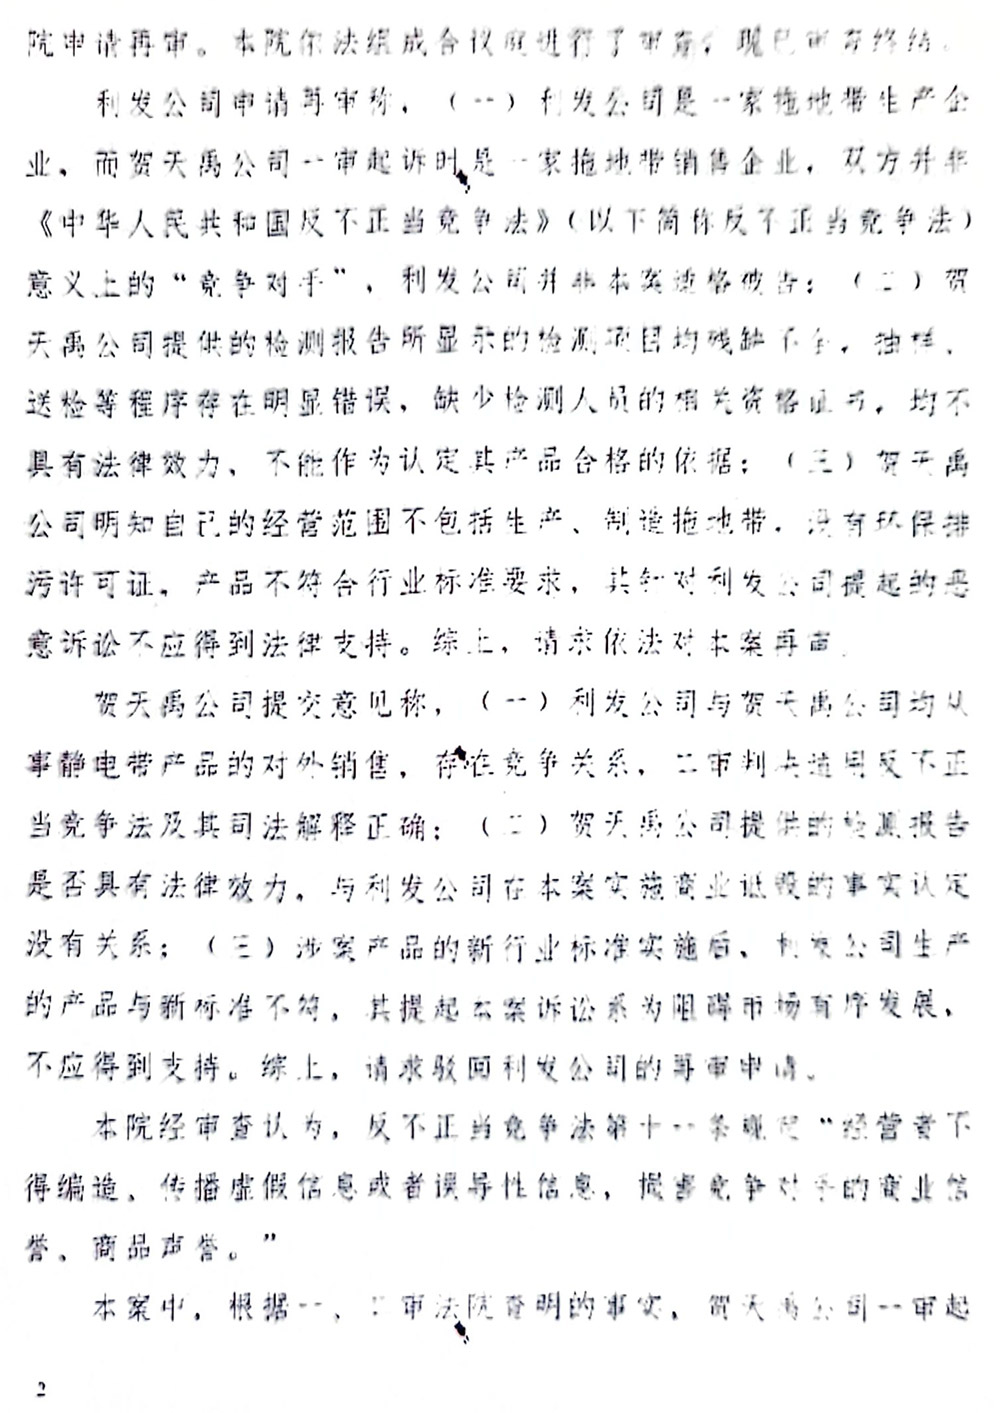 院申请再审。本院依法组成合议庭进行了审查，现已审查终结。
利发公司申请再审称，（一）利发公司是一家拖地带生产企
业，而贺天禹公司一审起诉时是一家拖地带销售企业，双方并非
《中华人民共和国反不正当竞争法》（以下简称反不正当竞争法）
意义上的“竞争对手”，利发公司并非本案适格被告；（二）贺
天禹公司提供的检测报告所显示的检测项目均残缺不全，抽样、
送检等程序存在明显错误，缺少检测人员的相关资格证书，均不
具有法律效力，不能作为认定其产品合格的依据；（三）贺天禹
公司明知自己的经营范围不包括生产、制造拖地带，没有环保排
污许可证，产品不符合行业标准要求，其针对利发公司提起的恶
意诉讼不应得到法律支持。综上，请求依法对本案再审。
贺天禹公司提交意见称，（一）利发公司与贺天禹公司均从
事静电带产品的对外销售，存在竞争关系，二审判决适用反不正
当竞争法及其司法解释正确；（二）贺天禹公司提供的检测报告
是否具有法律效力，与利发公司在本案实施商业诋毁的事实认定
没有关系；（三）涉案产品的新行业标准实施后，利发公司生产
的产品与新标准不符，其提起本案诉讼系为阻碍市场有序发展，
不应得到支持。综上，请求驳回利发公司的再审申请。
本院经审查认为，反不正当竞争法第十一条规定“经营者不
得编造、传播虚假信息或者误导性信息，损害竞争对手的商业信
誉、商品声誉。”
本案中，根据一、二审法院查明的事实，贺天禹公司一审起
2